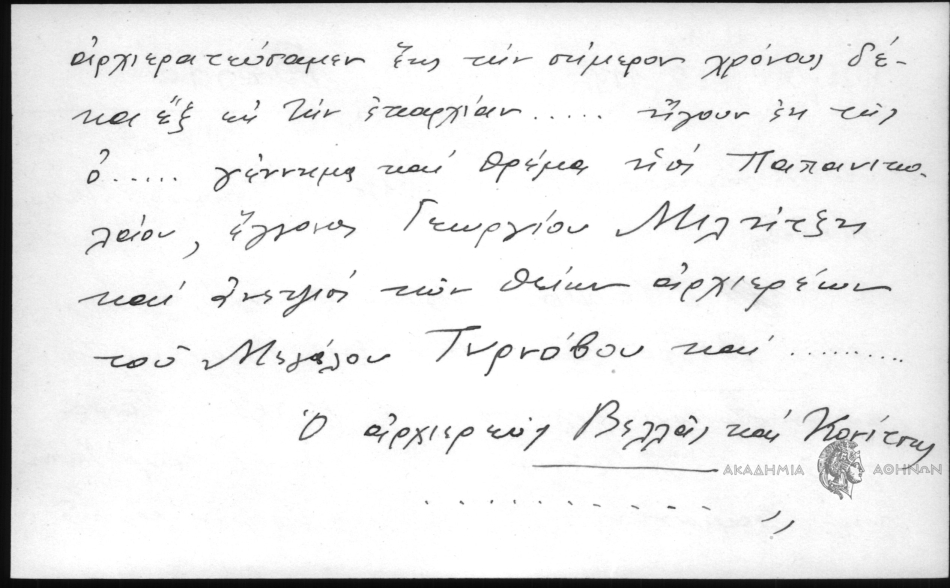 ἀρχιερατεύσαμεν ἕως τὴν σήμερον χρόνους δέ-
κα ἕξ εἰς τὴν ἐπαρχίαν ..... ἤγουν ἐκ τῆς
ὁ ..... γέννημα καὶ θρέμα Παπανικο-
λάου, ἔγγονος Γεωργίου
καὶ ἀνεψιοὶ τῶν θείων ἀρχιερέων
τοῦ Μεγάλου Τυρνόβου καὶ ..........
Ὁ ἀρχιερεὺς Βελλᾶς καὶ Κονίτσης
ΑΚΑΔΗΜΙΑ ΑΘΗΝΩΝ
............ ,,